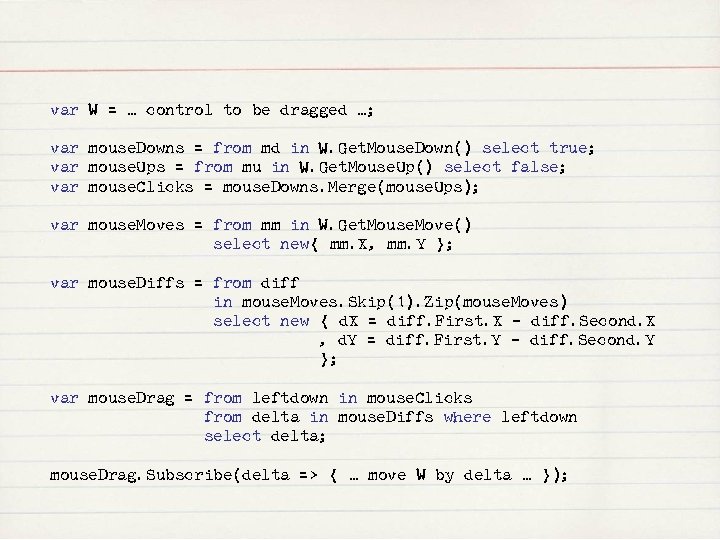 var W = … control to be dragged …;
var mouse.Downs = from md in W.Get.Mouse.Down() select true;
var mouse.Ups = from mu in W.Get.Mouse.Up() select false;
var mouse.Clicks = mouse.Downs.Merge(mouse.Ups);
var mouse.Moves = from mm in W.Get.Mouse.Move()
select new{ mm.X, mm.Y };
var mouse.Diffs = from diff
in mouse.Moves.Skip(1).Zip(mouse.Moves)
select new { d.X = diff.First.X - diff.Second.X
, d.Y = diff.First.Y - diff.Second.Y
};
var mouse.Drag = from leftdown in mouse.Clicks
from delta in mouse.Diffs where leftdown
select delta;
mouse.Drag.Subscribe(delta => { … move W by delta … });